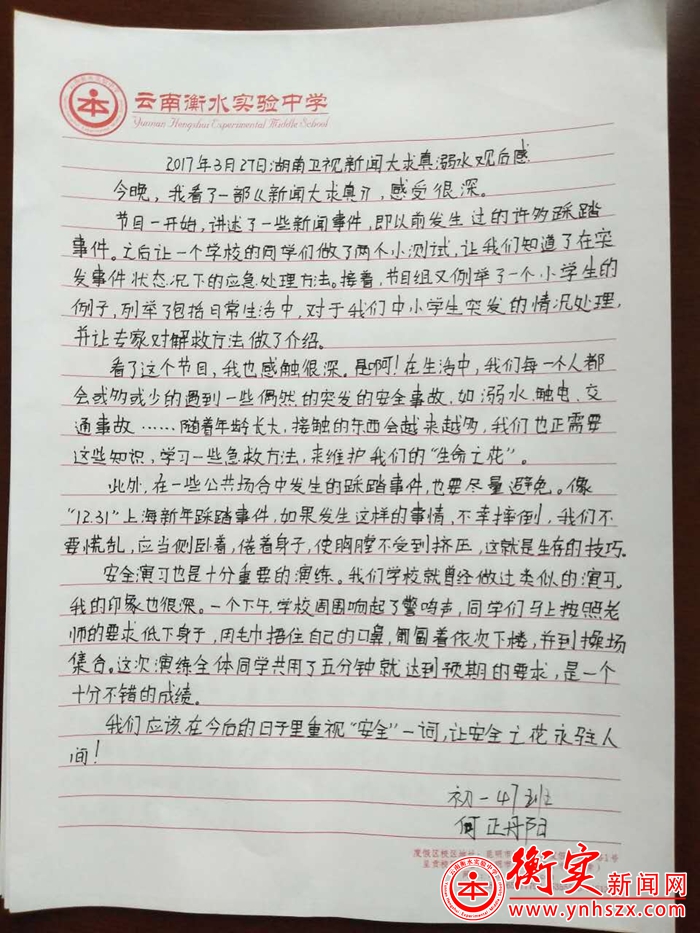 云南衡水实验中学
Yunnan Hengshui Experimental Middle School
2017年3月27日湖南卫视新闻大求真溺水观后感
今晚，我看了一部《新闻大求真》，感受很深。
节目一开始，讲述了一些新闻事件，即以前发生过的许多踩踏
事件。之后让一个学校的同学们做了两个小测试，让我们知道了在突
发事件状态况下的应急处理方法。接着，节目组又例举了一个小学生的
例子，列举了包括日常生活中，对于我们中小学生突发的情况处理，
并让专家对解救方法做了介绍。
看了这个节目，我也感触很深。是啊！在生活中，我们每一个人都
会或多或少的遇到一些偶然的突发的安全事故，如溺水、触电、交
通事故……随着年龄长大，接触的东西会越来越多，我们也正需要
这些知识，学习一些急救方法，来维护我们的“生命之花”。
此外，在一些公共场合中发生的踩踏事件，也要尽量避免。像
“12.31”上海新年踩踏事件，如果发生这样的事情，不幸摔倒，我们不
要慌乱，应当侧卧着，倦着身子，使胸膛不受到挤压，这就是生存的技巧。
安全演习也是十分重要的演练。我们学校就曾经做过类似的演习。
我的印象也很深。一个下午，学校周围响起了警鸣声，同学们马上按照老
师的要求低下身子，用毛巾捂住自己的口鼻，匍匐着依次下楼，并到操场
集合。这次演练全体同学共用了五分钟就达到预期的要求，是一个
十分不错的成绩。
我们应该在今后的日子里重视“安全”一词，让安全之花永驻人
间！
初一47班
何正丹阳
度假区校区地址：昆明市
呈贡校
衡实新闻网
www.ynhszx.com